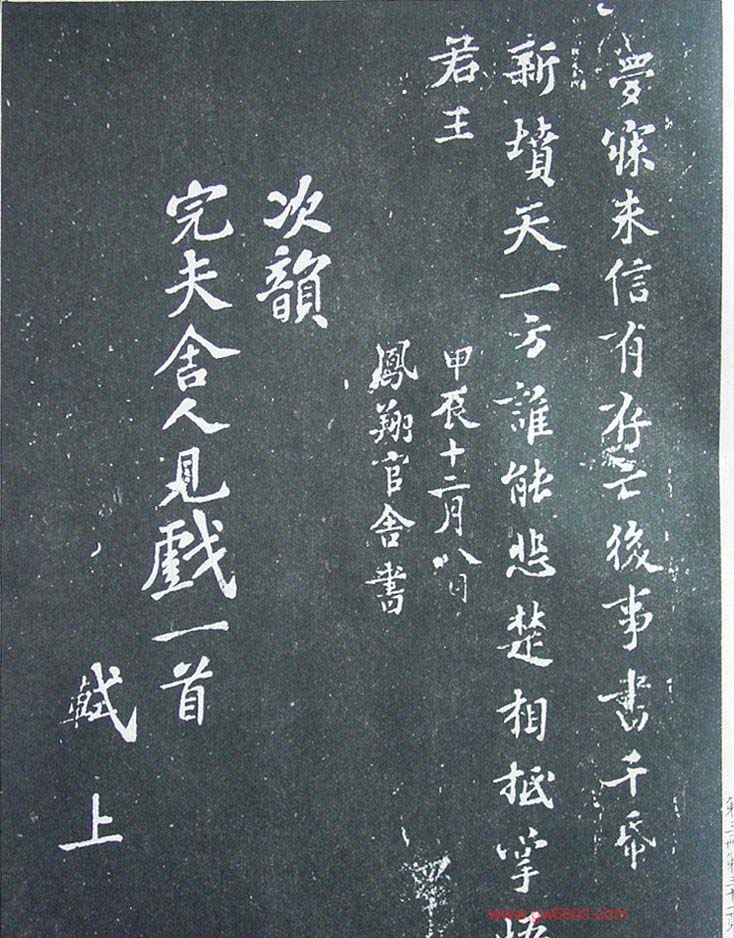 夢寐未信有存亡後事書千帋
新墳天一方誰能悲楚相抵掌悟
君王
甲辰十二月八日
鳳翔官舍書
次韻
完夫舍人見戲一首
軾上